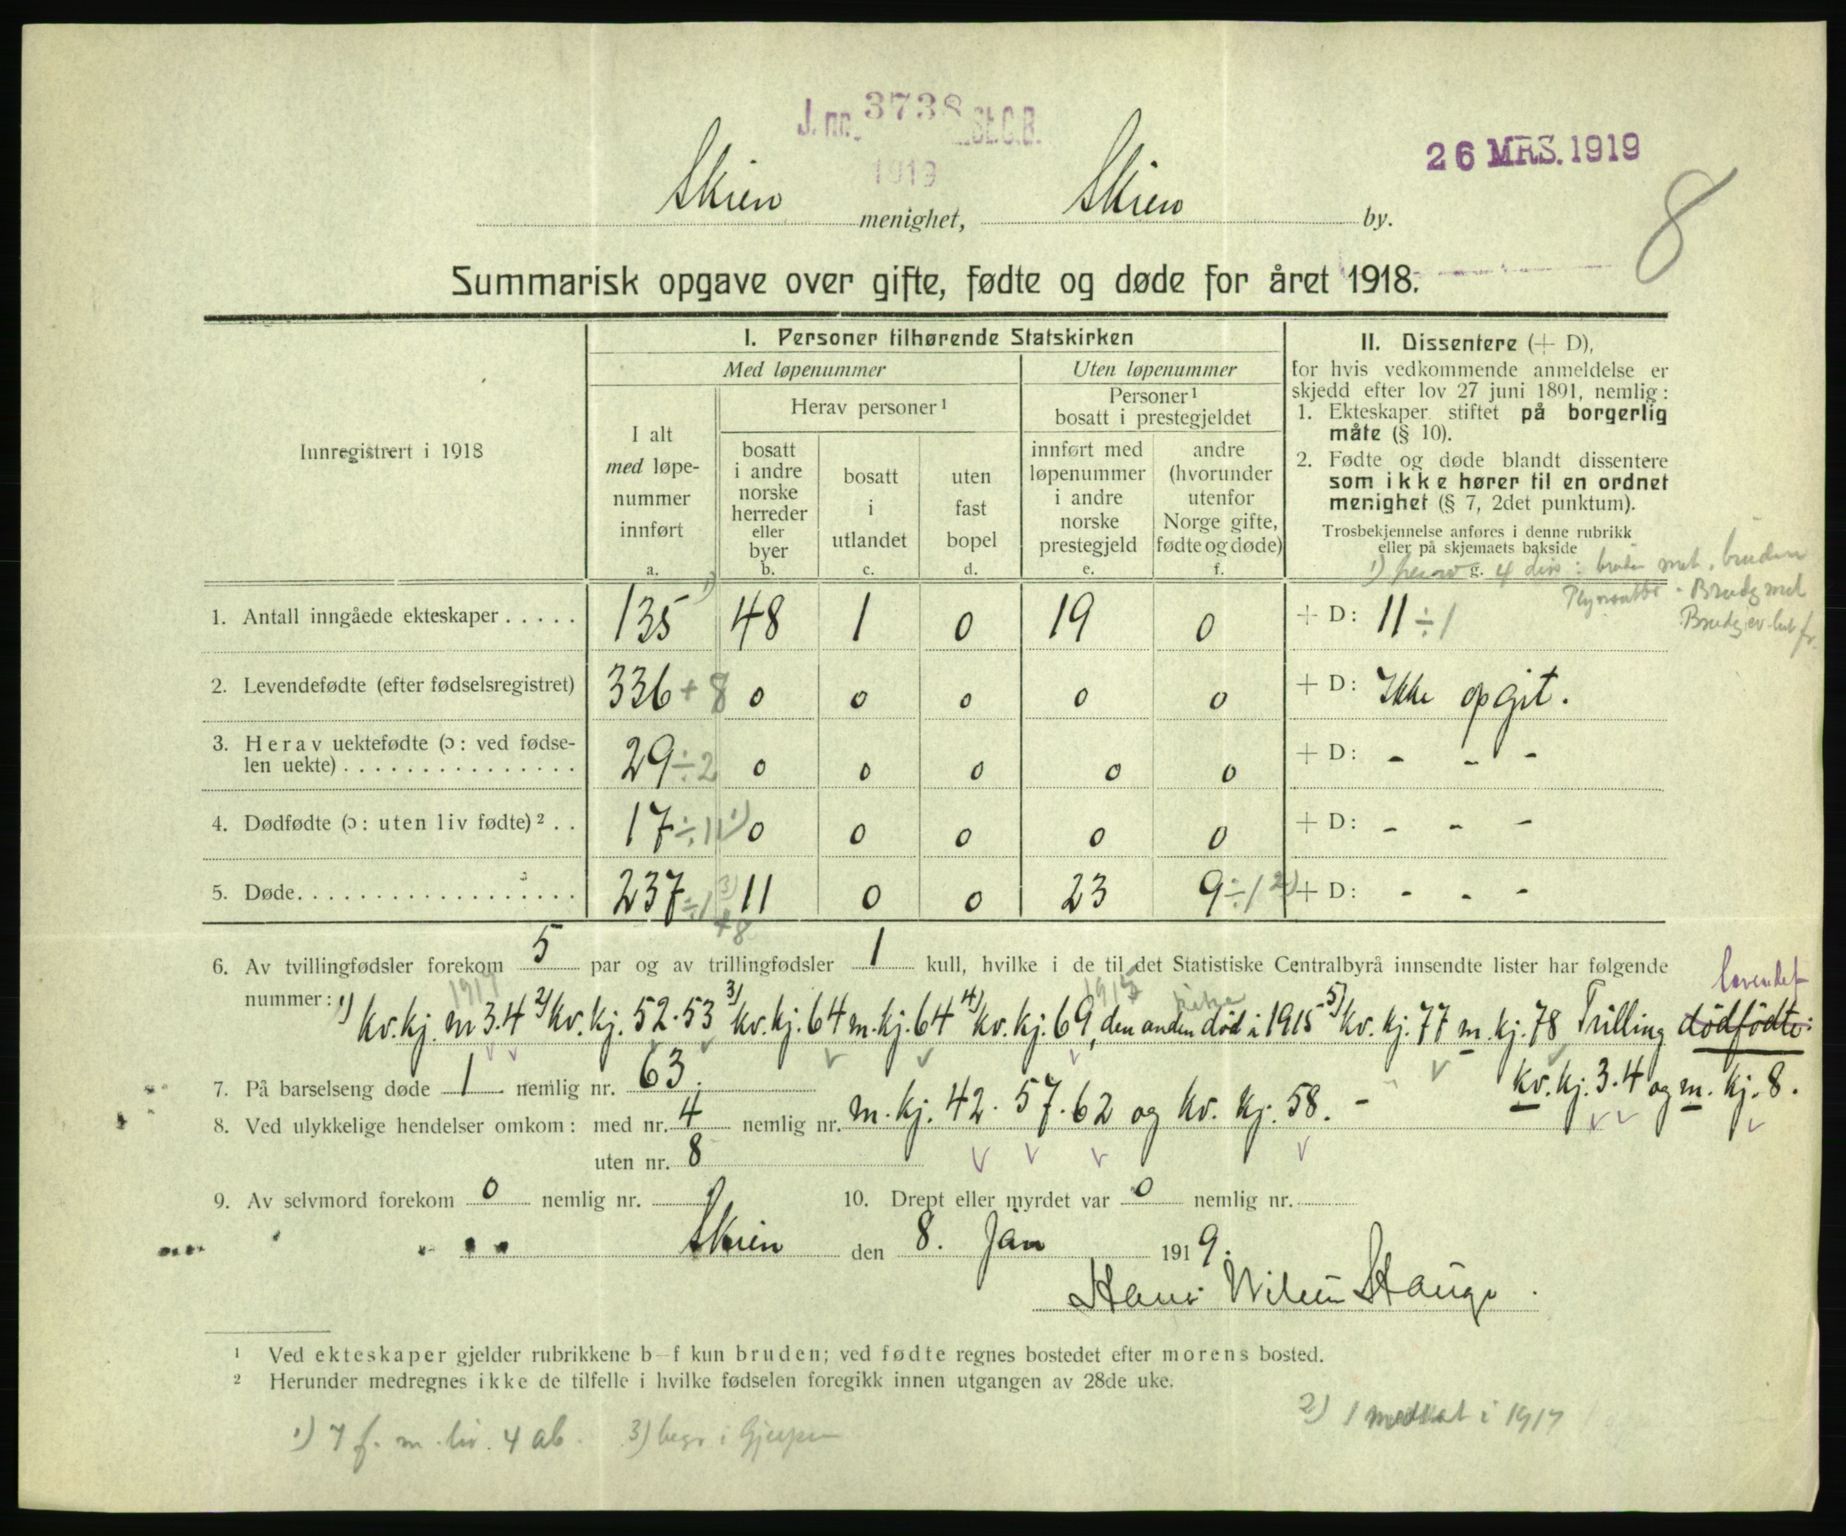 J. nr. 3738 St.C.B.
1919
26 MRS. 1919
Skien menighet, Skien by.
8
Summarisk opgave over gifte, fødte og døde for året 1918.
Innregistrert i 1918
I. Personer tilhørende Statskirken
Med løpenummer
Uten løpenummer
I alt med løpenummer innført
a.
Herav personer¹
bosatt i andre norske herreder eller byer
b.
bosatt i utlandet
c.
uten fast bopel
d.
Personer¹ bosatt i prestegjeldet
innført med løpenummer i andre norske prestegjeld
e.
andre (hvorunder utenfor Norge gifte, fødte og døde)
f.
II. Dissentere (+ D),
for hvis vedkommende anmeldelse er
skjedd efter lov 27 juni 1891, nemlig:
1. Ekteskaper stiftet på borgerlig
måte (§ 10).
2. Fødte og døde blandt dissentere
som ikke hører til en ordnet
menighet (§ 7, 2det punktum).
Trosbekjennelse anføres i denne rubrikk
eller på skjemaets bakside
g.
1) herav 4 diss: bruden met. bruden
- Brudg met
Brudg ev. lut fr.
1. Antall inngåede ekteskaper . . . . . 135 1) 48 1 0 19 0 + D: 11 ÷ 1
2. Levendefødte (efter fødselsregistret) 336 + 8 0 0 0 0 0 + D: Ikke opgit.
3. Herav uektefødte (ɔ: ved fødse-
len uekte) . . . . . . . . . . . . . . . 29 ÷ 2 0 0 0 0 0 + D: - - -
4. Dødfødte (ɔ: uten liv fødte)² . . 17 ÷ 11 1) 0 0 0 0 0 + D: - - -
5. Døde. . . . . . . . . . . . . . . . . . 237 ÷ 1 3) + 8 11 0 0 23 9 ÷ 1 2) + D: - - -
6. Av tvillingfødsler forekom 5 par og av trillingfødsler 1 kull, hvilke i de til det Statistiske Centralbyrå innsendte lister har følgende
levendef
nummer: 1) kv. kj. m 3.4 2) kv. kj. 52.53 3) kv. kj. 64 m. kj. 64 4) kv. kj. 69, den anden død i 1915 - 5) kv. kj. 77 m. kj. 78, Trilling dødfødte:
kv. kj. 3.4 og m. kj. 8.
7. På barselseng døde 1 nemlig nr. 63.
8. Ved ulykkelige hendelser omkom: med nr. 4 nemlig nr. m. kj. 42. 57. 62 og kv. kj. 58. -
uten nr. 8
9. Av selvmord forekom 0 nemlig nr.
10. Drept eller myrdet var 0 nemlig nr.
Skien den 8. Jan 1919.
Hans Nilsen Hauge.
¹ Ved ekteskaper gjelder rubrikkene b–f kun bruden; ved fødte regnes bostedet efter morens bosted.
² Herunder medregnes ikke de tilfelle i hvilke fødselen foregikk innen utgangen av 28de uke.
1) 7 f. m. liv. 4 ab.
3) begr i Gjerpen
2) 1 medtat i 1917